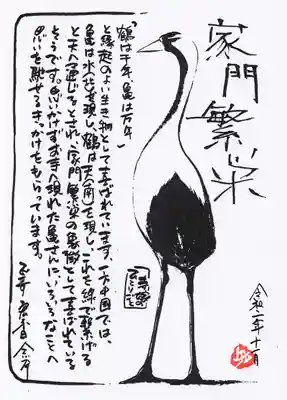 家門繁栄
「鶴は千年、亀は万年」
と縁起のよい生き物として喜ばれています。一方中国では、
亀は水(北)を現し、鶴は天(南)を現し、これを線で繋げる
と天へ通じるとされ、家門繁栄の象徴として喜ばれている
そうです。思いがけず寺へ現れた亀さんにいろいろなことへ
思いを馳せるきっかけをもらっています。
令和二年十一月